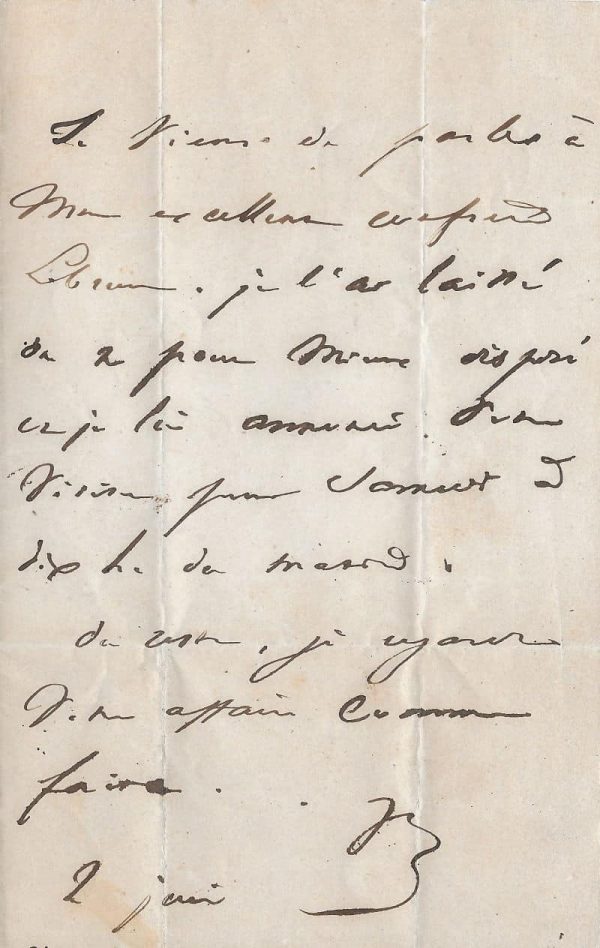 Je viens de parler à
Mon excellent confrère
Lebrun. je l'ai laissé
on ne peut mieux disposé
et je lui annoncé votre
visite pour Samedi à
dix h. du matin.
du reste, je regarde
votre affaire comme
faite.
2 juin